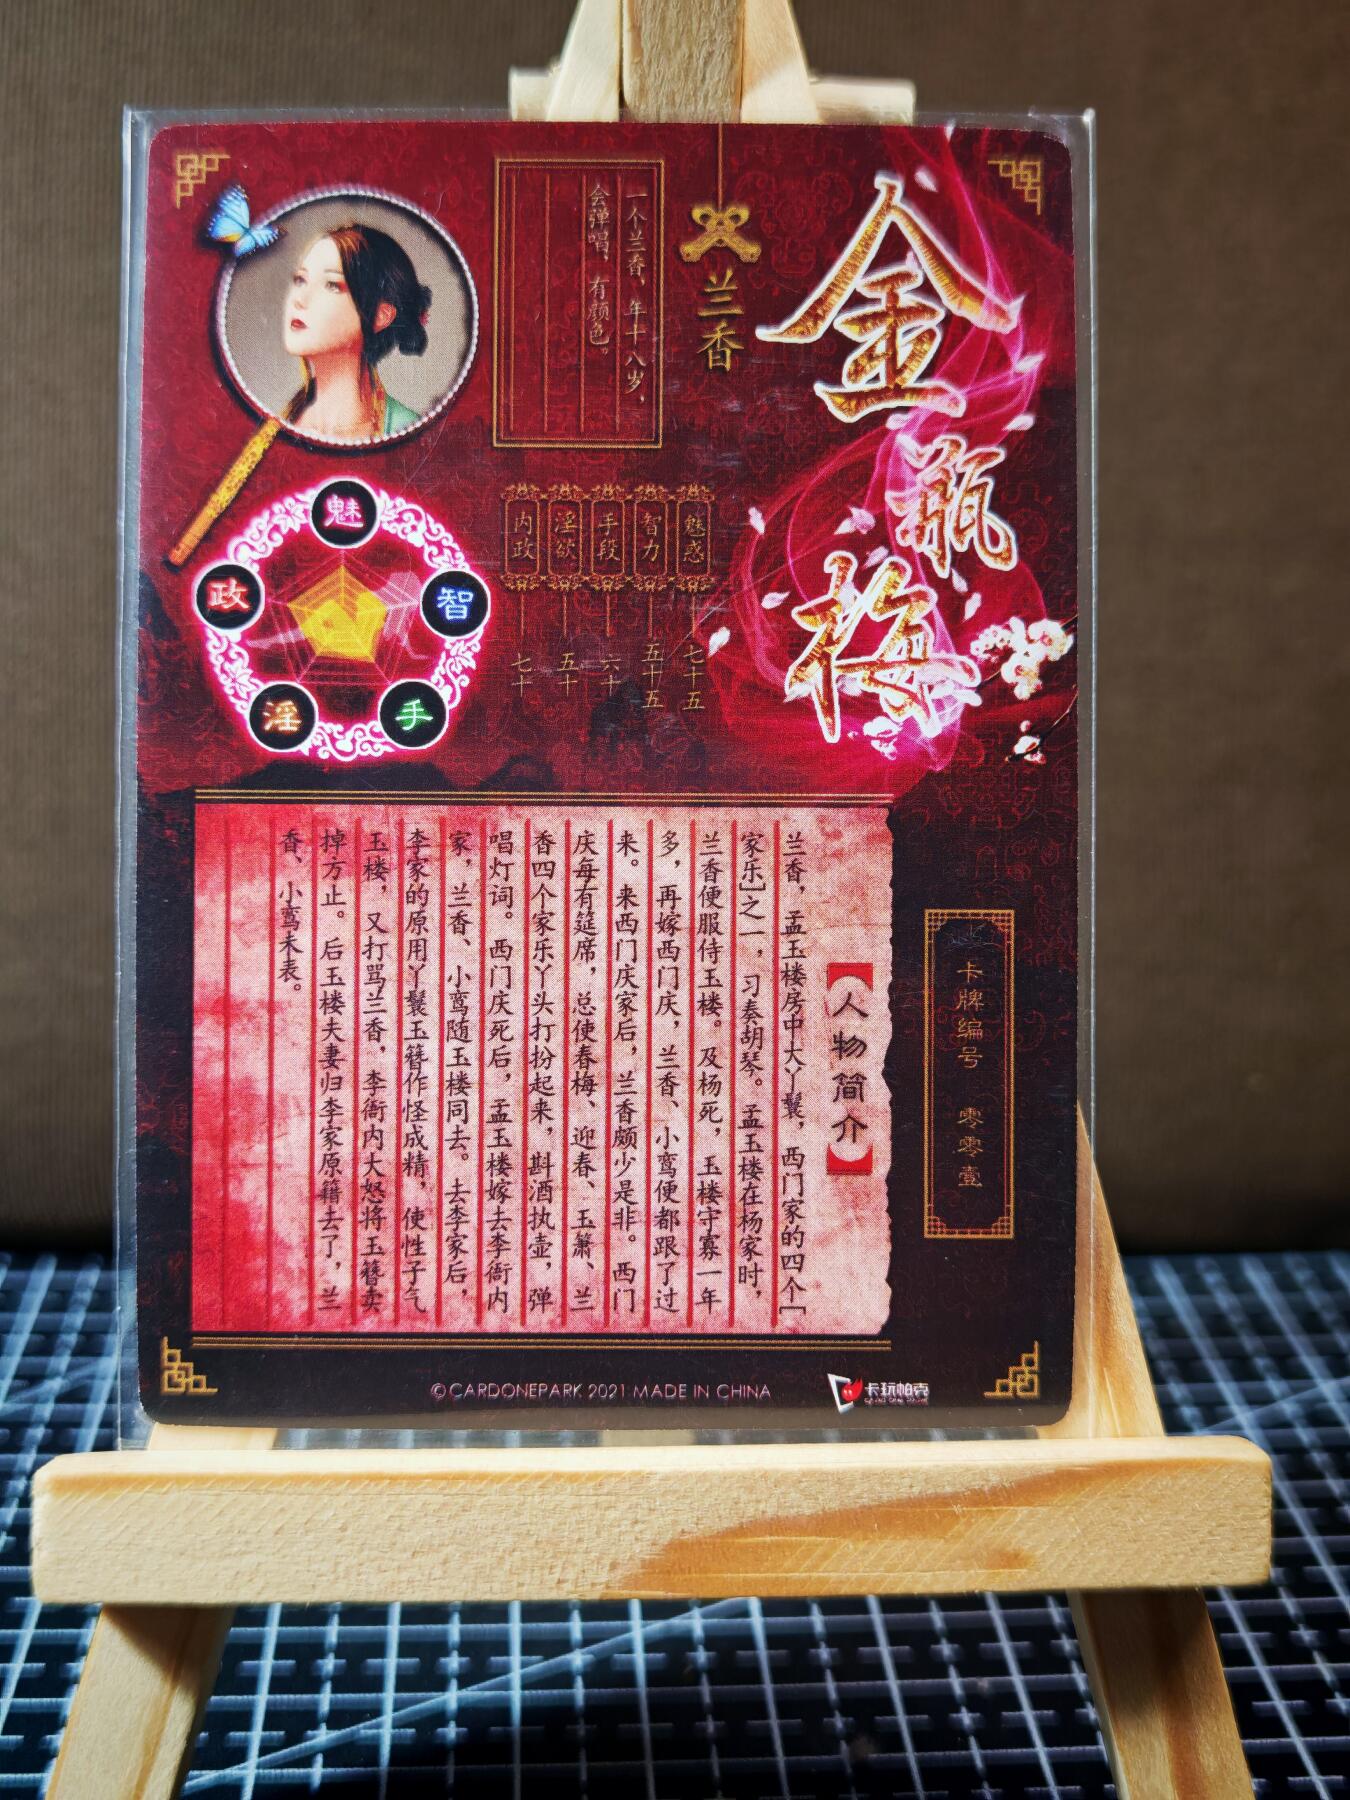 金瓶梅
兰香
一个兰香，年十八岁，
会弹唱，有颜色。
魅惑 七十五
智力 五十五
手段 六十
淫欲 五十
内政 七十
魅
智
手
淫
政
卡牌编号 零零壹
【人物简介】
兰香，孟玉楼房中大丫鬟，西门家的四个[
家乐]之一，习奏胡琴。孟玉楼在杨家时，
兰香便服侍玉楼。及杨死，玉楼守寡一年
多，再嫁西门庆，兰香、小鸾便都跟了过
来。来西门庆家后，兰香颇少是非。西门
庆每有筵席，总使春梅、迎春、玉箫、兰
香四个家乐丫头打扮起来，斟酒执壶，弹
唱灯词。西门庆死后，孟玉楼嫁去李衙内
家，兰香、小鸾随玉楼同去。去李家后，
李家的原用丫鬟玉簪作怪成精，使性子气
玉楼，又打骂兰香，李衙内大怒将玉簪卖
掉方止。后玉楼夫妻归李家原籍去了，兰
香、小鸾未表。
©CARDONEPARK 2021 MADE IN CHINA
卡玩帕克